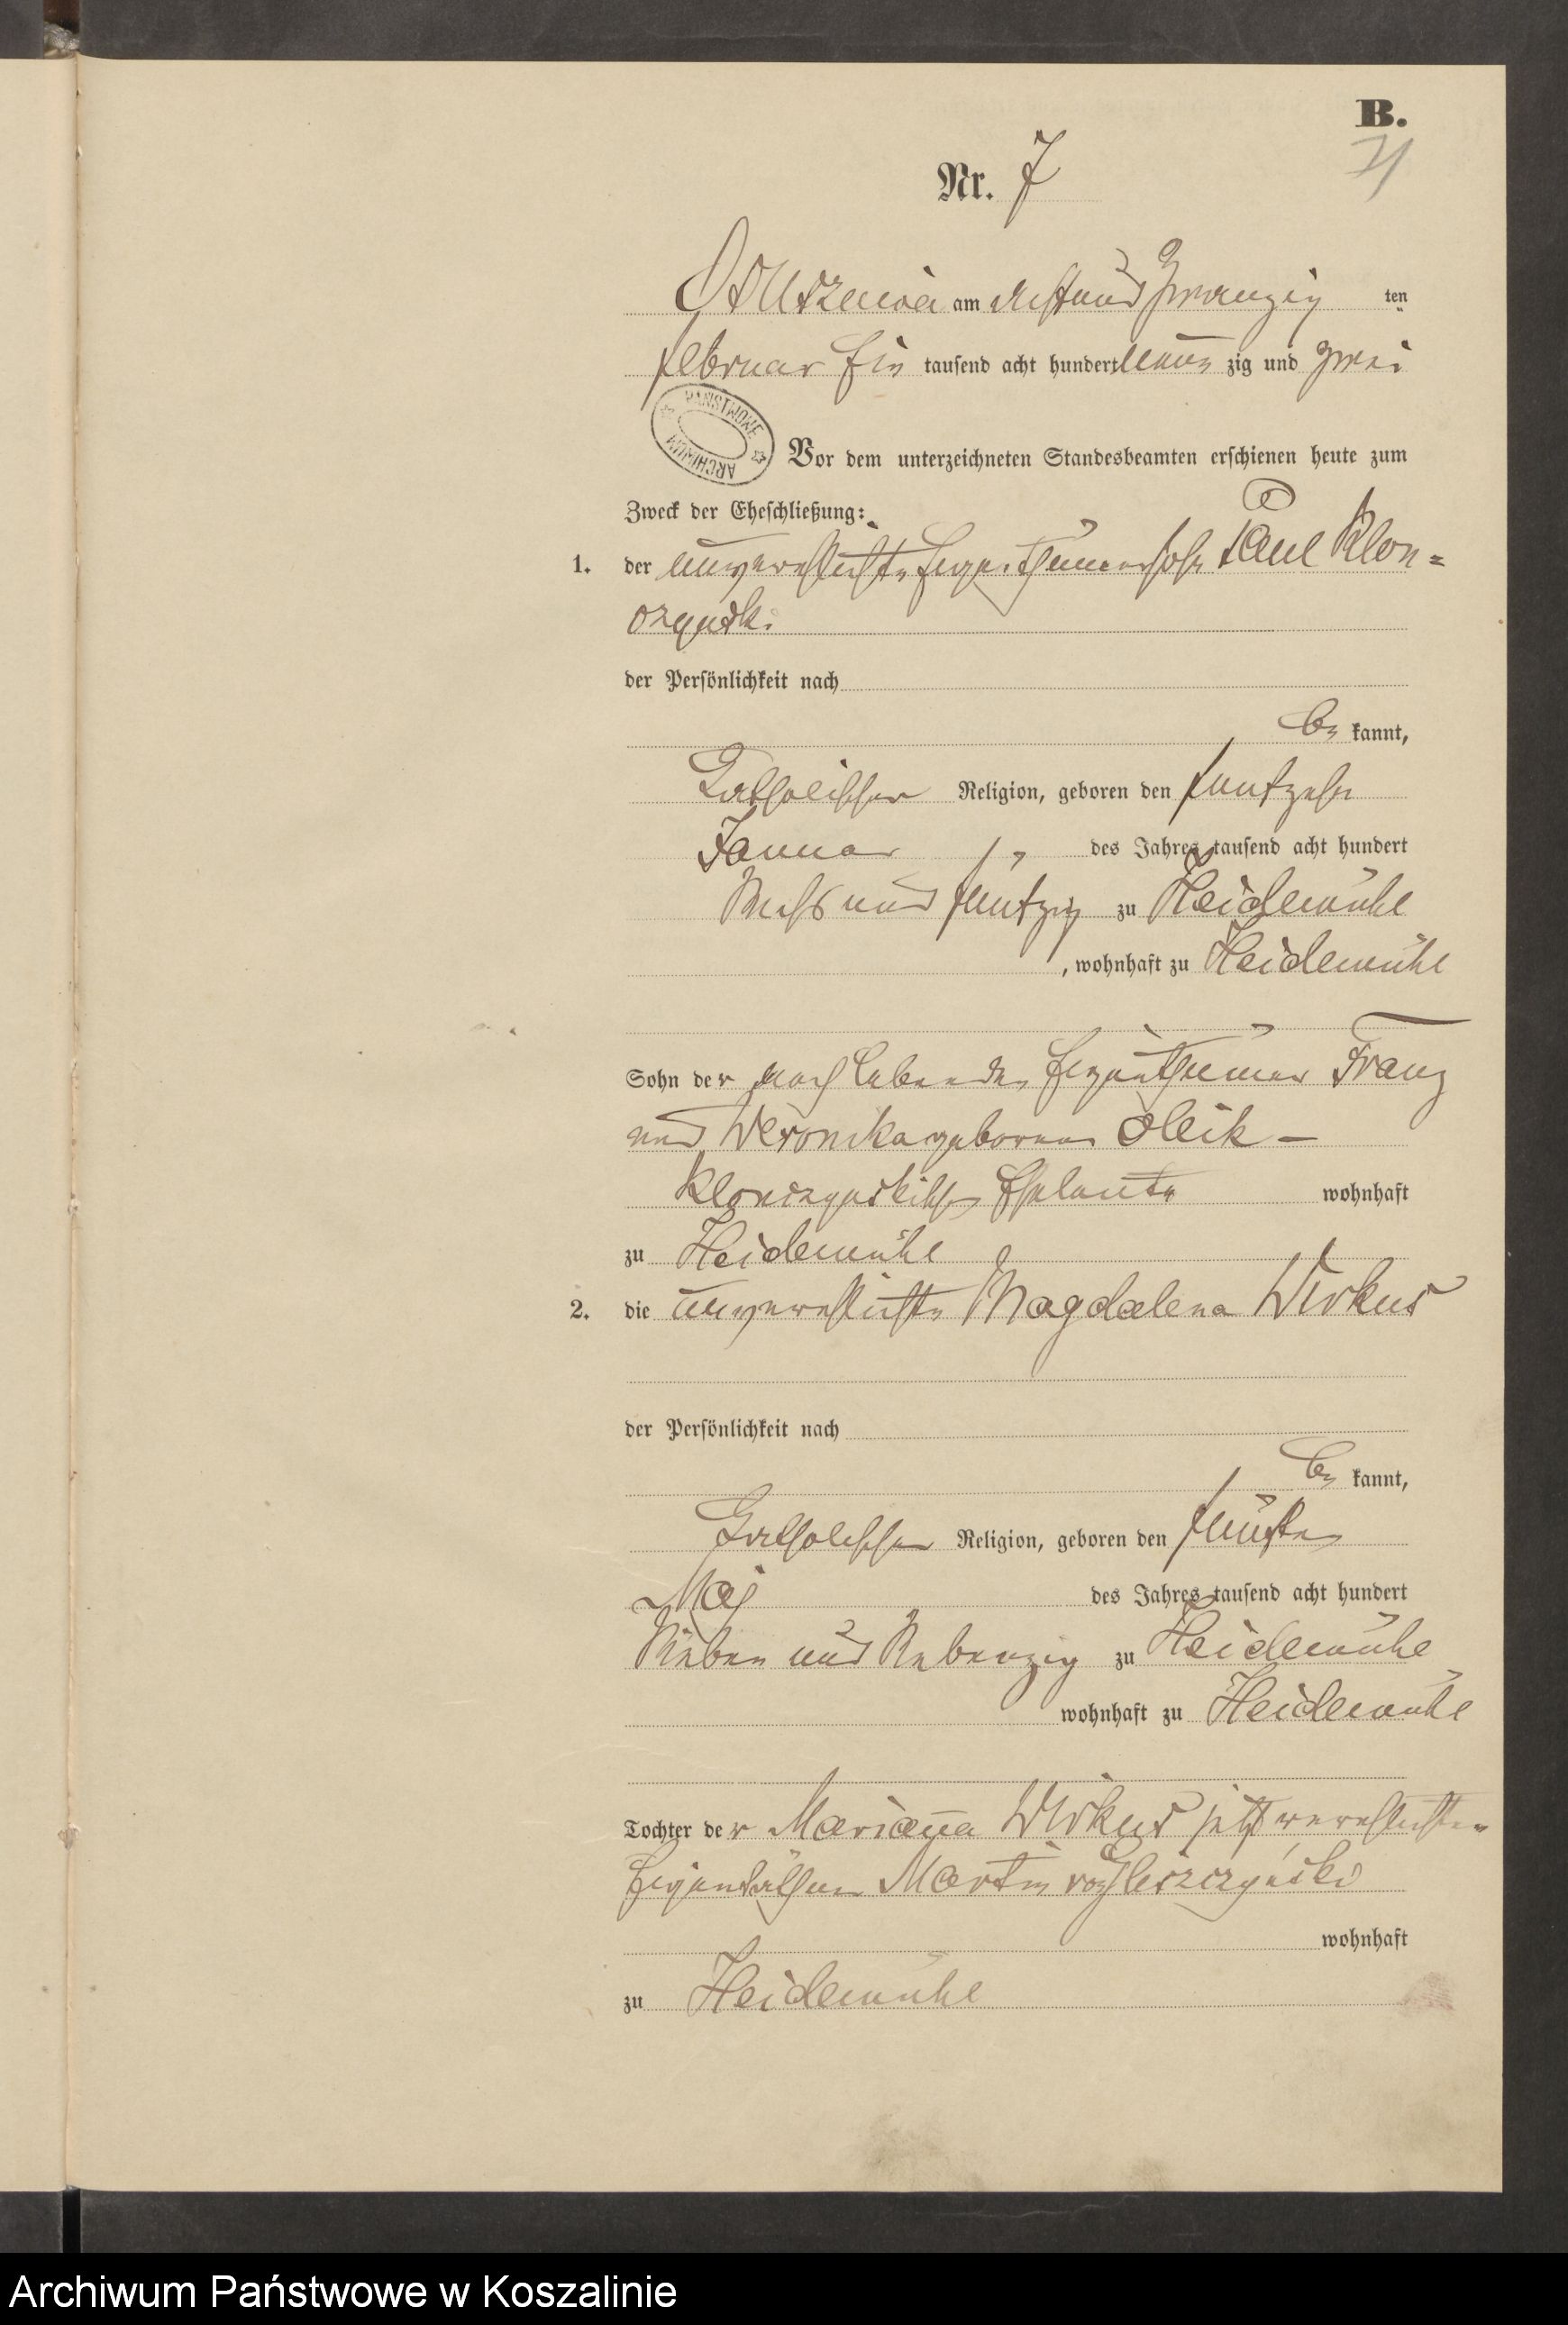 B.
71
Nr. 7
am acht und zwanzig ten
Februar Ein tausend acht hundert neun zig und zwei
PANSTWOWE ARCHIWUM
Vor dem unterzeichneten Standesbeamten erschienen heute zum
Zweck der Eheschließung:
1. der unverehelichte Eigenthümersohn Paul Klon=
czynski
der Persönlichkeit nach
be kannt,
Katholischer Religion, geboren den funfzehn
Januar des Jahres tausend acht hundert
sechs und funfzig zu Heidemühl
, wohnhaft zu Heidemühl
Sohn der noch lebenden Eigenthümer Franz
und Veronika geborene
Klonczynskischen Eheleute wohnhaft
zu Heidemühl
2. die unverehelichte Magdalena Wirkus
der Persönlichkeit nach
be kannt,
Katholischer Religion, geboren den funften
Maj des Jahres tausend acht hundert
sieben und siebenzig zu Heidemühl
wohnhaft zu Heidemühl
Tochter der Marianna Wirkus jetzt verehelichten
Martin
wohnhaft
zu Heidemühl
Archiwum Państwowe w Koszalinie